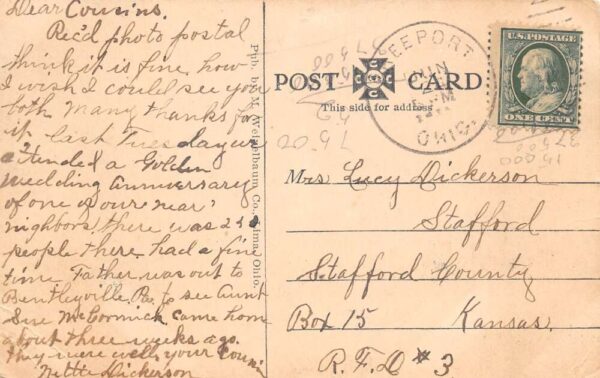 Dear Cousins.
Rec'd photo postal
think it is fine, how
I wish I could see you
both Many thanks for
it Last Tuesday we
attended a Golden
Wedding Anniversary
of one of our near
neighbors, there was 230
people there had a fine
time Father was out to
Bentleyville Pa. to see Aunt
Sue McCormick came home
about three weeks ago.
they were well, your cousin
Nettie Dickerson
Pub. by M. Weixelbaum Co., Lima, Ohio.
POST CARD
This side for address.
EEPORT
JUN
OHIO.
U.S. POSTAGE
ONE CENT
Mrs Lucy Dickerson
Stafford
Stafford County
Box 15 Kansas.
R.F.D #3